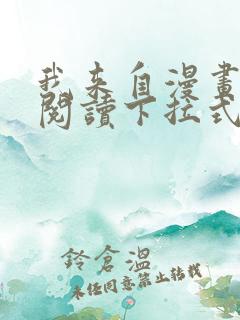 我来自漫畫
閱讀下拉式
鈴倉溫
未經同意禁止轉載